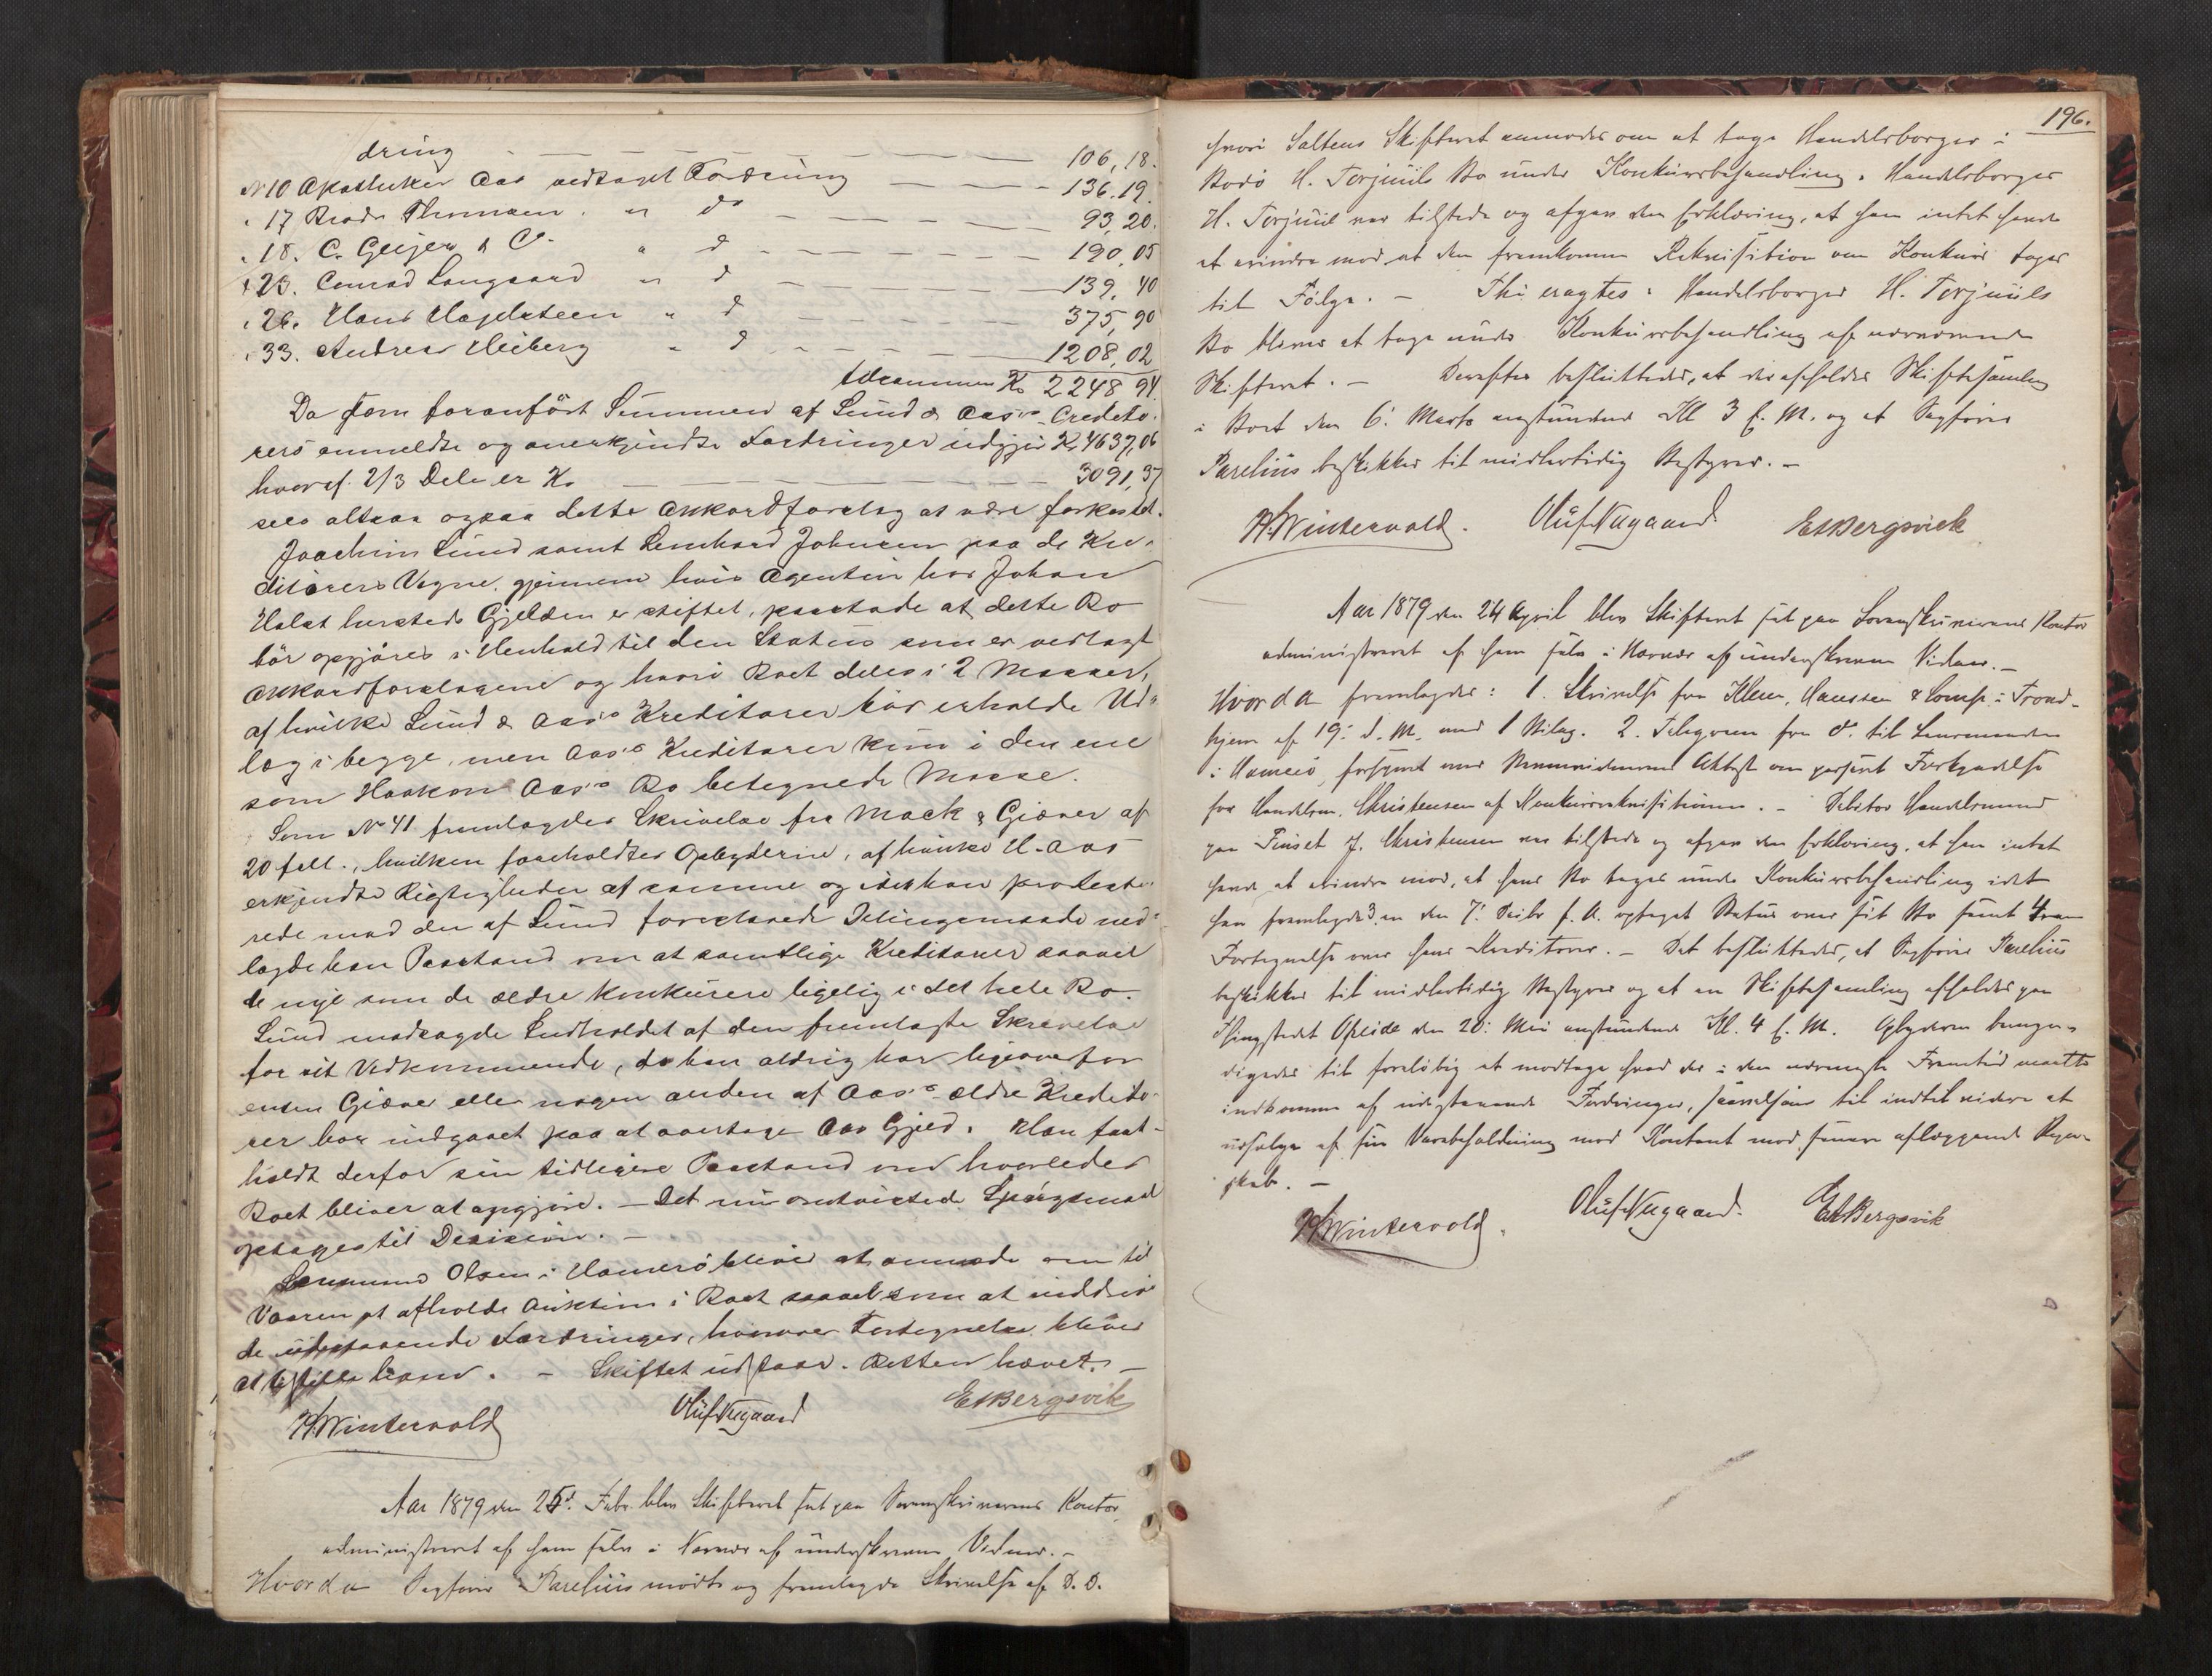 dring 106,18.
No 10 Apotheker Aas vedtaget Fordring 136.19.
" 17 Brødr Thomsen " do 93,20.
" 18. C. Geijer & Co. " d 190,05
" 23. Conrad Langaard " d 139,40
" 26. Hans Hagelsteen " d 375,90
" 33. Andreas Heiberg " d 1208,02
tilsammen Kr 2248 94.
Da som foranført Summen af Lund & Aas's Credito-
rers anmeldte og anerkjendte Fordringer udgjør Kr 4637,06
hvoraf 2/3 Dele er Kr 3091,37
sees altsaa ogsaa dette Akkordforslag at være forkastet.
Joachim Lund samt Lernhard Johnsen paa de Kre-
ditorers Vegne, gjennem hvis Agentur hos Johan
Halst hersteds Gjelden er stiftet, paastode at dette Bo
bør opgjøres i Henhold til den Status som er vedlagt
Akkordforslagene og hvori Boet deles i 2 Masser,
af hvilke Lund & Aas's Kreditorer bør erholde Ud-
læg i begge, men Aas's Kreditorer kun i den ene
som Haakon Aas's Bo betegnede Masse.
Som No 41 fremlagdes Skrivelse fra Mack & Giæver af
20 febr., hvilken foreholdtes Opbyderne, af hvilke H. Aas
erkjendte Rigtigheden af samme og idet han proteste-
rede mod den af Lund foreslaaede Delingsmaade ned-
lagde han Paastand om at samtlige Kreditorer saavel
de nye som de ældre konkurere ligelig i det hele Bo.
Lund modsagde Indholdet af den fremlagte Skrivelse
for sit Vedkommende, da han aldrig har ligeoverfor
enten Giæver eller nogen anden af Aas's ældre Kredito-
rer har indgaaet paa at overtage Aas Gjeld. Han fast-
holdt derfor sin tidligere Paastand om hvorledes
Boet bliver at opgjøre. – Det nu omtvistede Spørgsmaal
optages til Decision. –
Lensmand Olsen i Hamerø bliver at anmode om til
Vaaren at afholde Auktion i Boet saavelsom at inddrive
de udestaaende Fordringer, hvorover Fortegnelse bliver
at tilstille ham. – Skiftet udstaar. Retten hævet. –
H. Wintervold Oluf Nygaard E A Bergsvik
Aar 1879 den 25d. Febr. blev Skifteret sat paa Sorenskriverens Kontor,
administreret af ham selv i Nærvær af underskrevne Vidner. –
Hvorda Sagfører Parelius mødte og fremlagde Skrivelse af D. D.
196.
hvori Saltens Skifteret anmodes om at tage Handelsborger i
Bodø H. Torjuuls Bo under Konkursbehandling. Handelsborger
H. Torjuul var tilstede og afgav den Erklæring, at han intet havde
at erindre mod at den fremkomne Rekvisition om Konkurs tages
til Følge. – Thi eragtes: Handelsborger H. Torjuuls
Bo bliver at tage under Konkursbehandling af nærværende
Skifteret. – Derefter besluttedes, at der afholdes Skiftesamling
i Boet den 6: Marts anstundende Kl 3 E. M. og at Sagfører
Parelius beskikkes til midlertidig Bestyrer. –
H. Wintervold. Oluf Nygaard. E A Bergsvick
Aar 1879 den 24 April blev Skifteret sat paa Sorenskriverens Kontor
administreret af ham selv i Nærvær af underskrevne Vidner. –
Hvorda fremlagdes: 1. Skrivelse fra Klem, Hanssen & Comp. i Trond-
hjem af 19: d. M. med 1 Bilag. 2. Telegram fra do. til Lensmanden
i Hamerø, forsynet med Stevnevidnernes Attest om passeret Forkyndelse
for Handelsm. Christensen af Konkursrekvisitionen. – Debitor Handelsmand
paa Finset J. Christensen var tilstede og afgav den Erklæring, at han intet
havde at erindre mod, at hans Bo tages under Konkursbehandling idet
han fremlagde 3. en den 7: Decbr f. A. optaget Status over sit Bo samt 4 en
Fortegnelse over hans Kreditorer. – Det besluttedes, at Sagfører Parelius
beskikkes til midlertidig Bestyrer og at en Skiftesamling afholdes paa
Thingstedet Opeide den 20: Mai anstundende Kl. 4 E. M. Opbyderen bemyn-
digedes til foreløbig at modtage hvad der i den nærmeste Fremtid maatte
indkomme af udestaaende Fordringer, saavelsom til indtil videre at
udsælge af sin Varebeholdning mod Kontant mod senere aflæggende Regn-
skab. –
H. Wintervold. Oluf Nygaard. E A Bergsvik